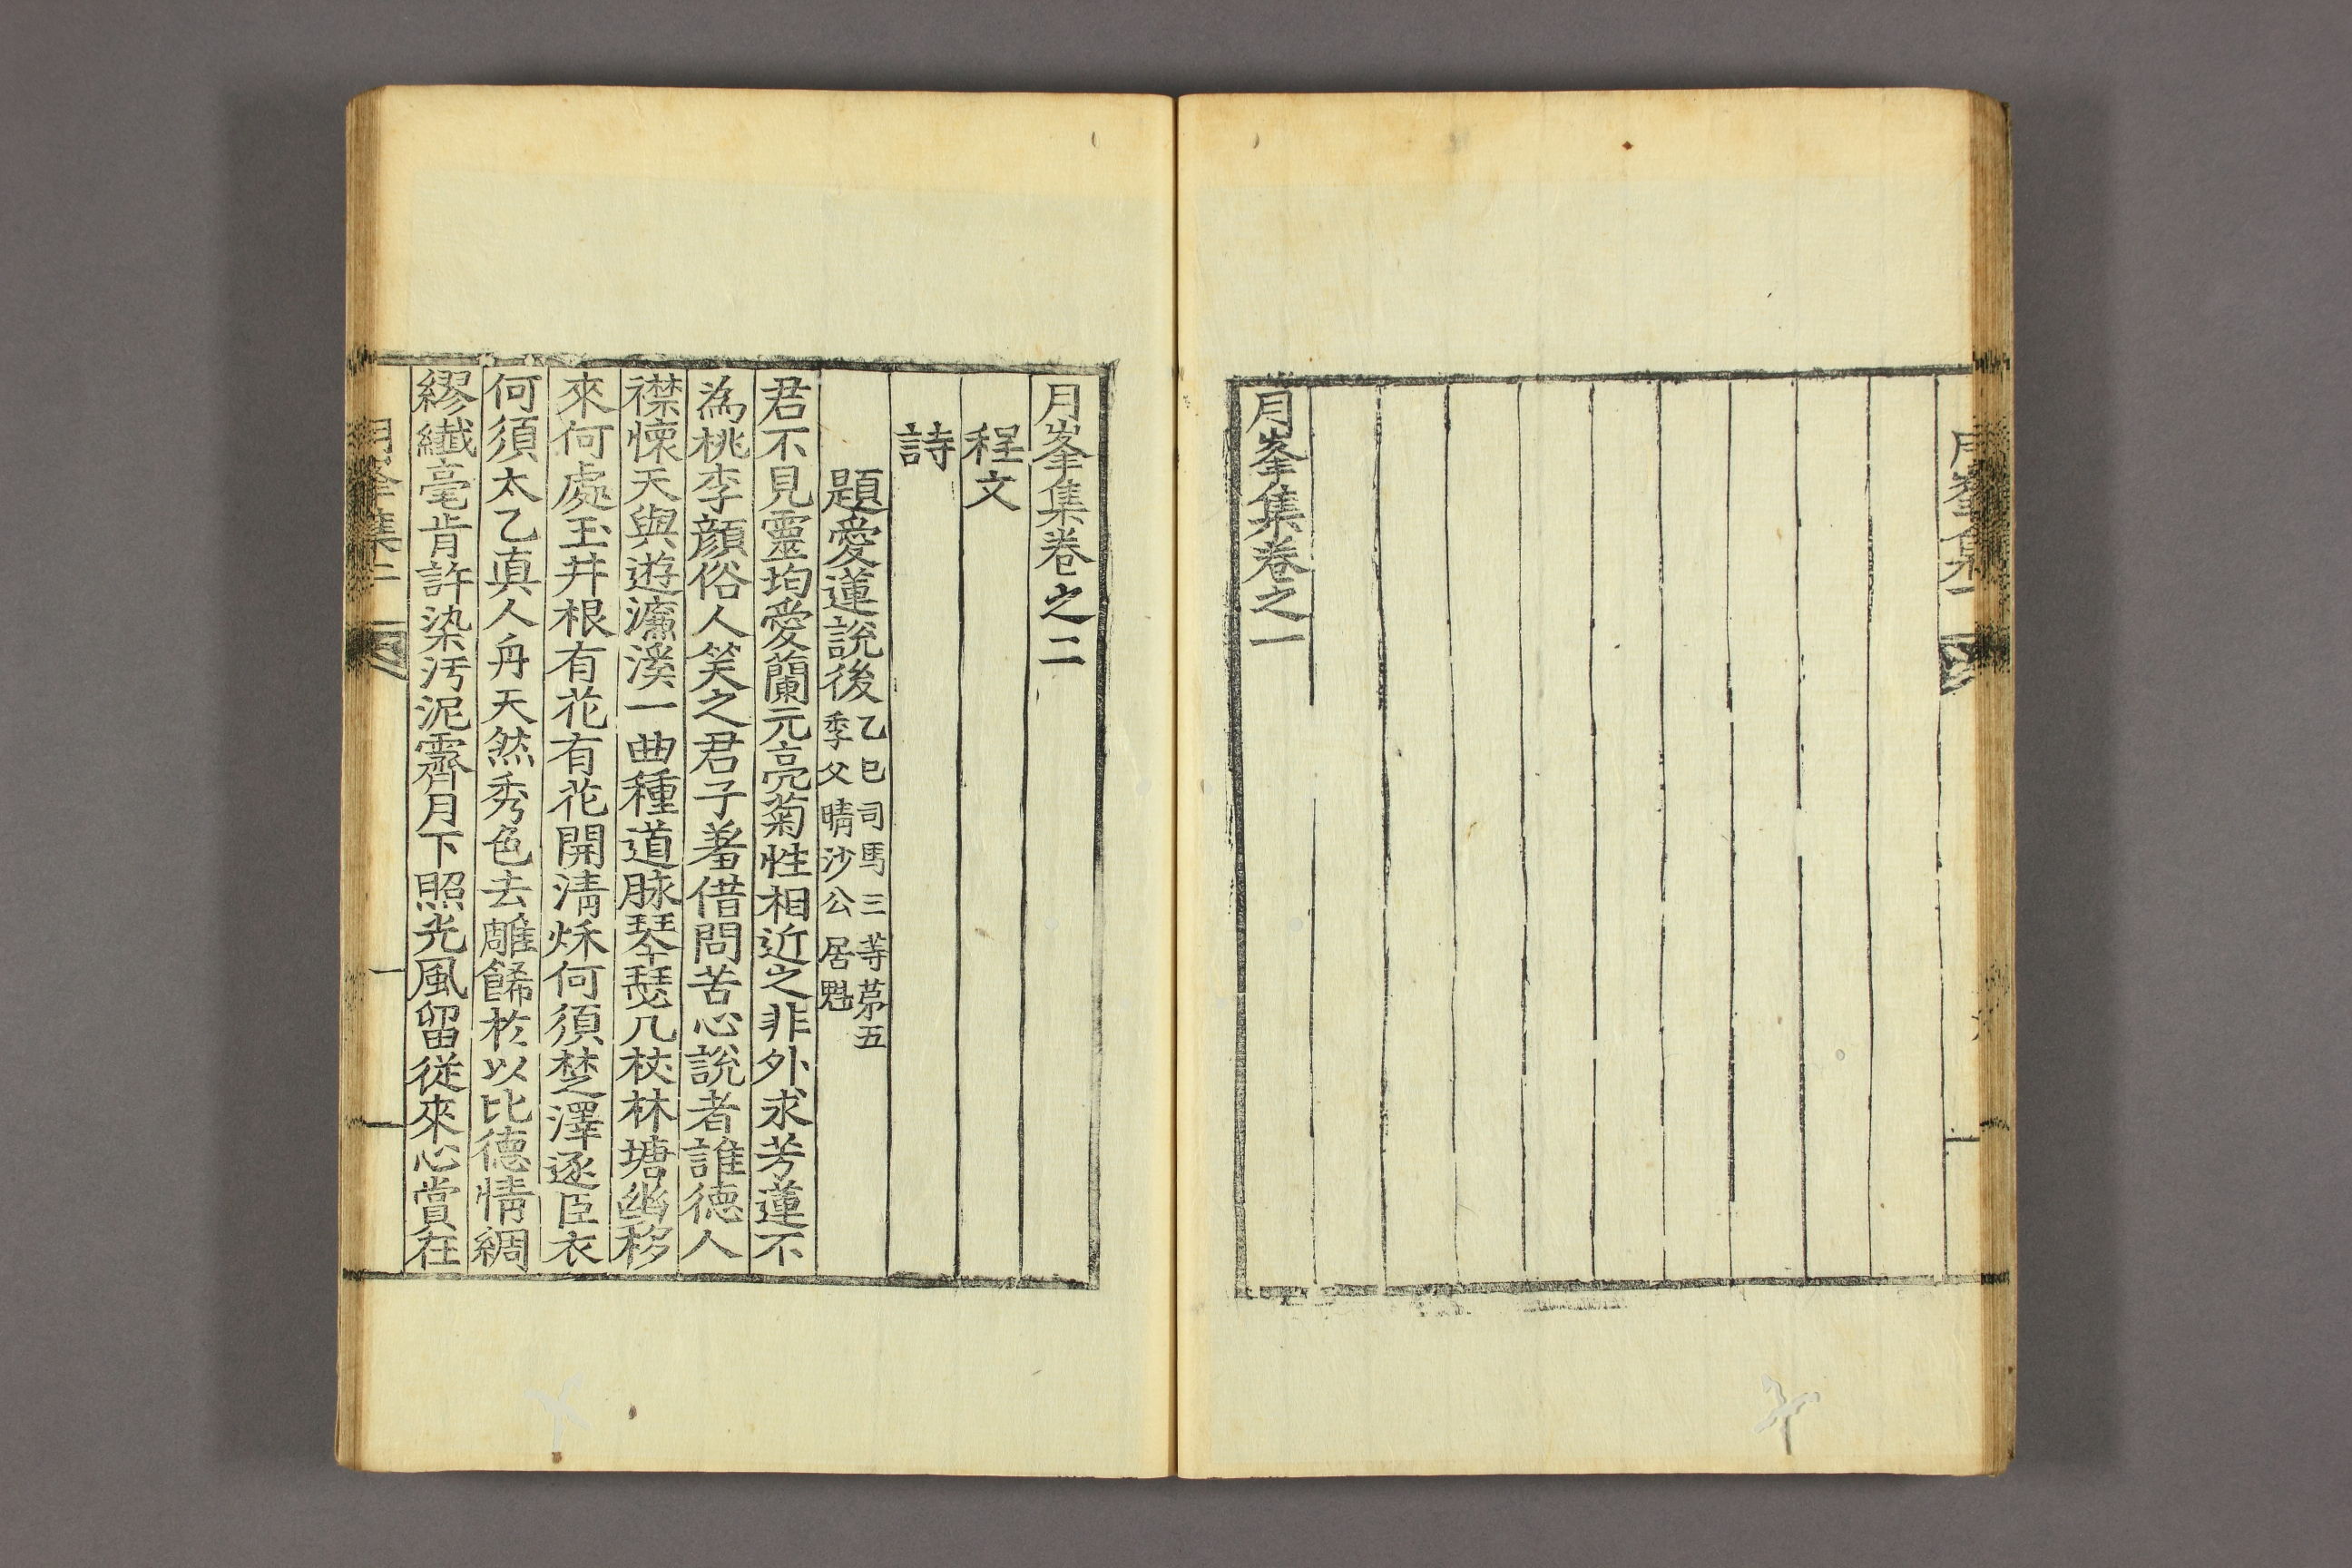 月峯集卷之一
月峯集卷之二
程文
詩
題愛蓮說後 乙巳司馬三等苐五 季父晴沙公居魁
君不見靈均愛蘭元亮菊性相近之非外求芳蓮不
為桃李顔俗人笑之君子羞借問苦心說者誰德人
襟懷天與遊濂溪一曲種道脉琴瑟几杖林塘幽移
來何處玉井根有花有花開淸烁何須楚澤逐臣衣
何須太乙眞人舟天然秀色去雕餙於以比德情綢
繆纎毫肯許染汚泥霽月下照光風留從來心賞在
月峯集二